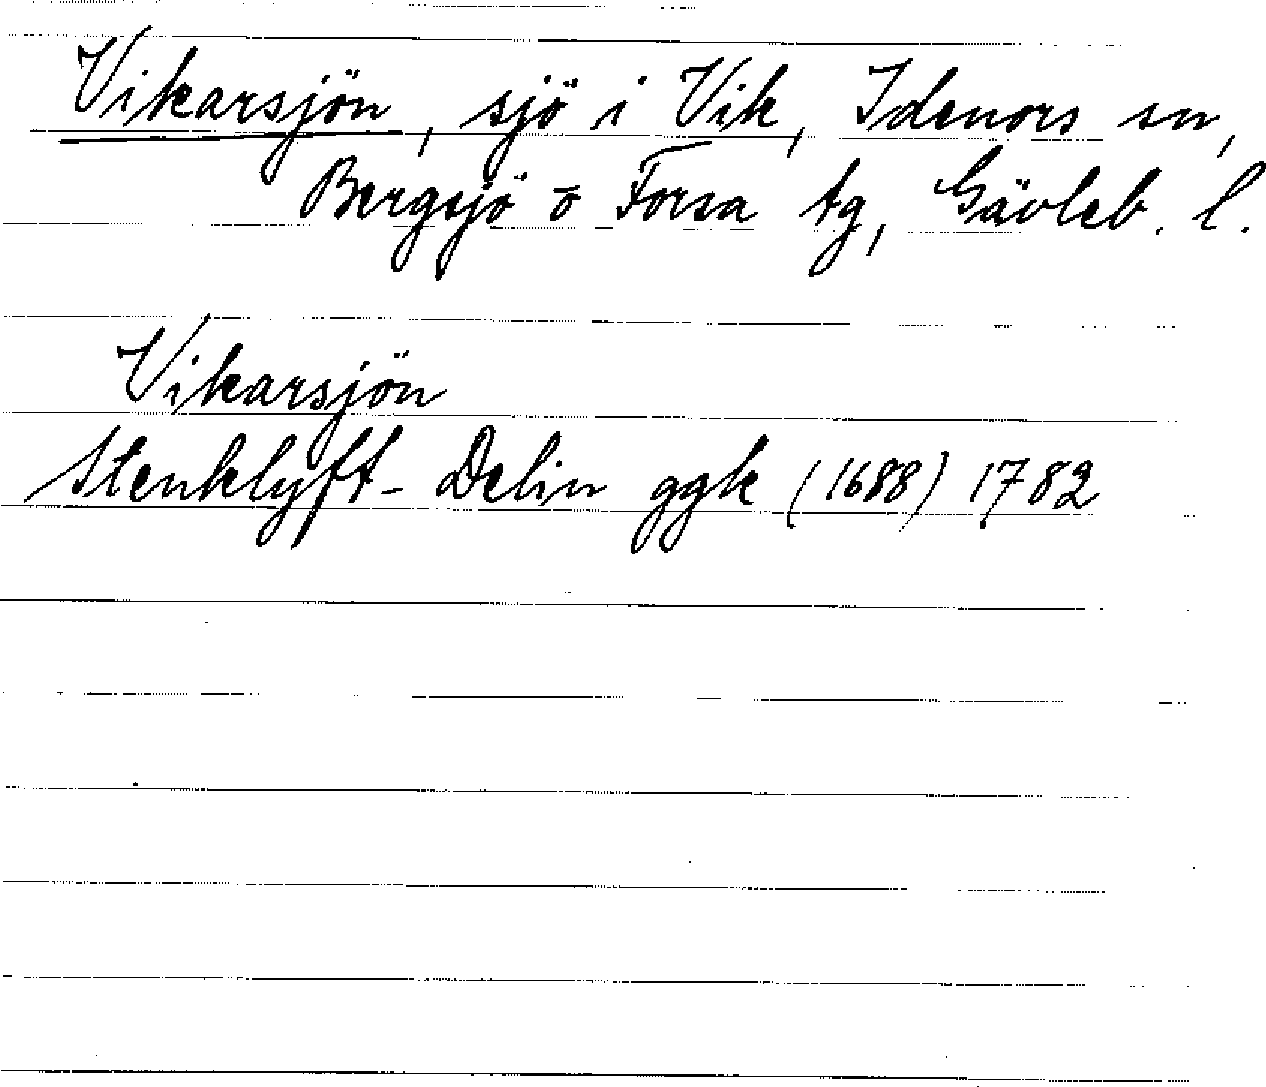 Vikarsjön, sjö i Vik, Idenors sn,
Bergsjö o Forsa tg, Gävleb. l.
Vikarsjön
Stenklyft - Delin ggk (1688) 1782